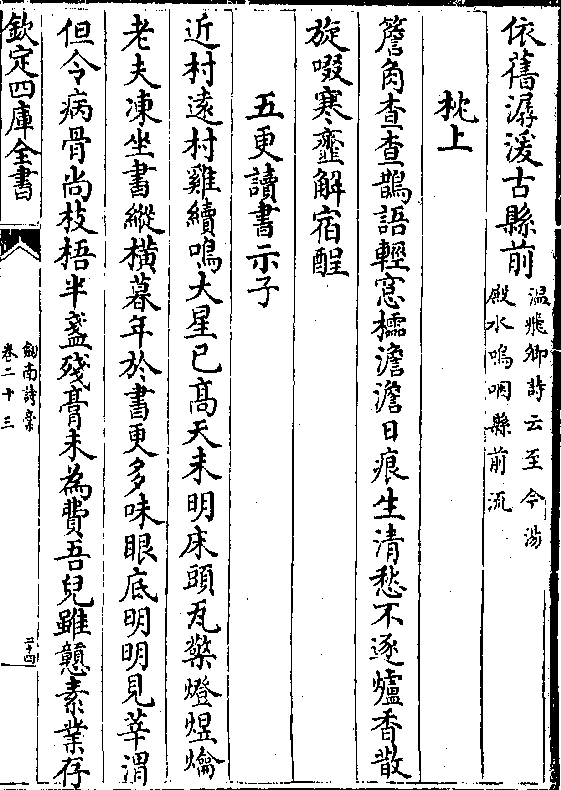 依舊潺湲古縣前
温飛卿詩云至今湯
殿水嗚咽縣前流
枕上
簷角查查鵲語輕窓櫺澹澹日痕生清愁不逐爐香散
旋啜寒虀解宿酲
五更讀書示子
近村遠村雞續鳴大星已髙天未明床頭瓦檠燈煜爚
老夫凍坐書縱橫暮年於書更多味眼底明明見莘渭
但令病骨尚枝梧半盞殘膏未為費吾兒雖戇素業存
欽定四庫全書
劍南詩槀
卷二十三
三十四